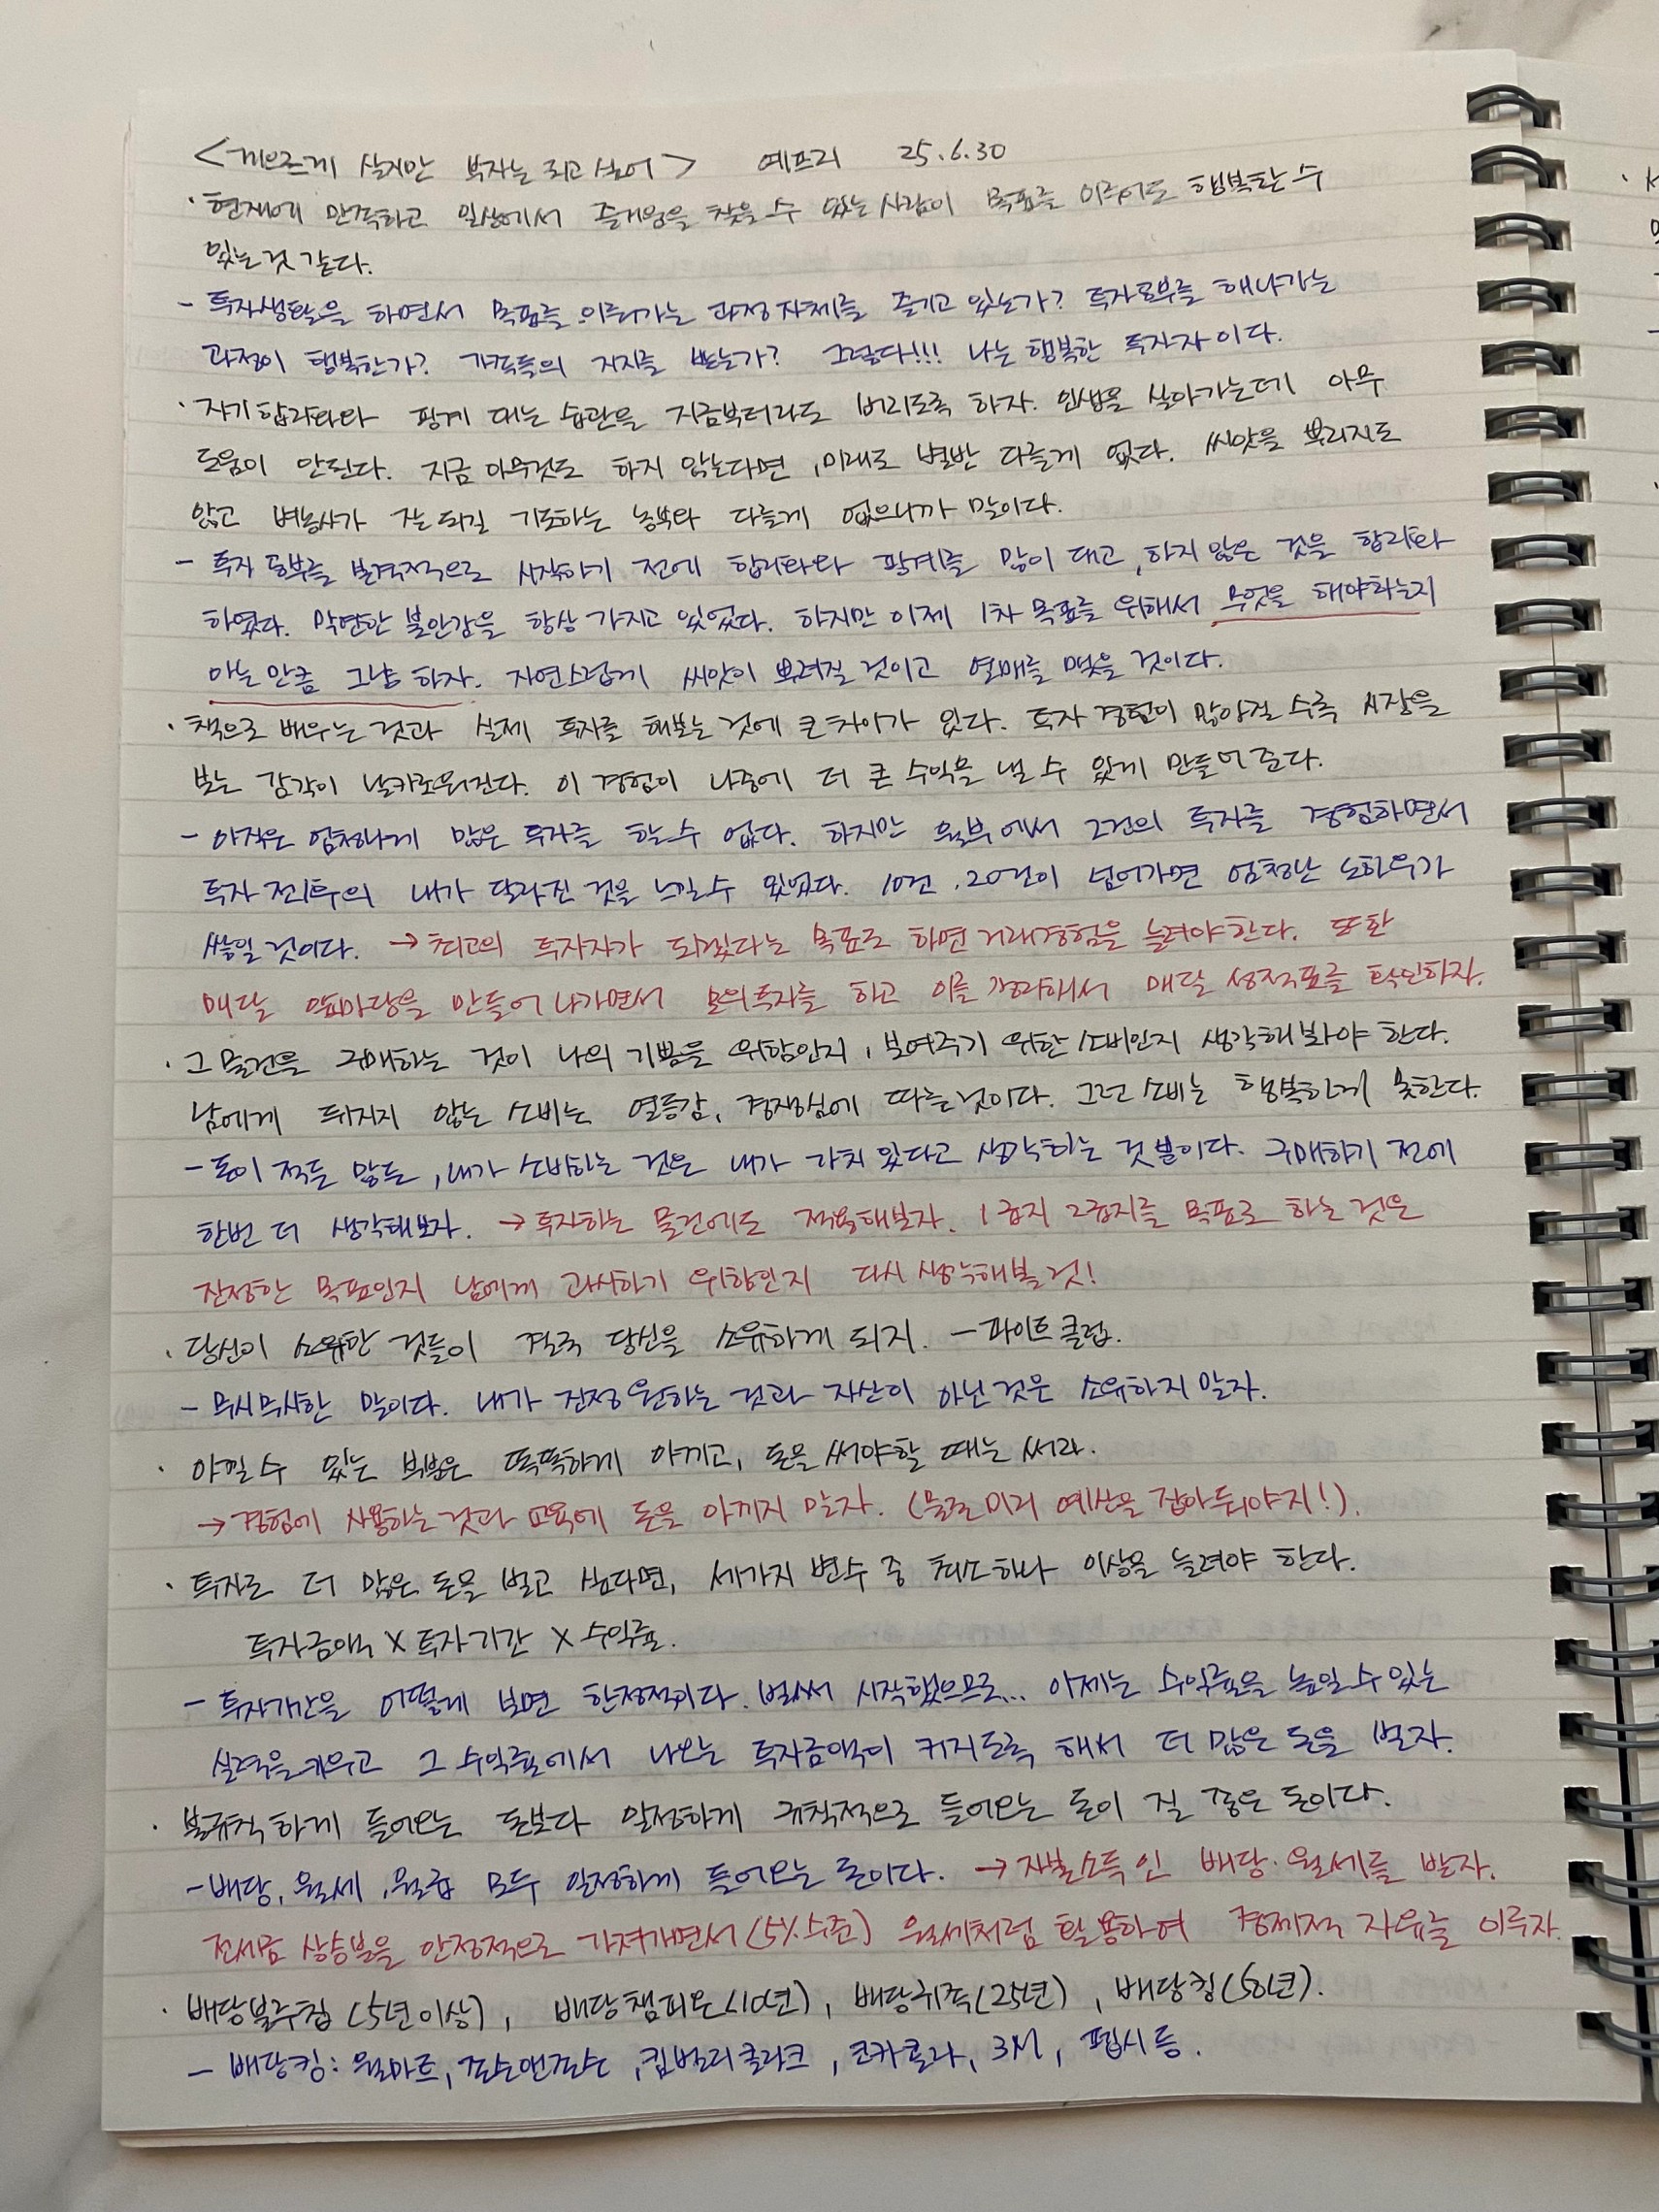 <게으르게 살지만 부자는 되고 싶어> 예프리 25.6.30
· 현재에 만족하고 일상에서 즐거움을 찾을 수 있는 사람이 목표를 이루어도 행복할 수
있는 것 같다.
- 투자생활을 하면서 목표를 이루어가는 과정 자체를 즐기고 있는가? 투자공부를 해나가는
과정이 행복한가? 가족들의 지지를 받는가? 그렇다!!! 나는 행복한 투자자이다.
· 자기합리화와 핑계 대는 습관을 지금부터라도 버리도록 하자. 인생을 살아가는데 아무
도움이 안된다. 지금 아무것도 하지 않는다면, 미래도 별반 다를게 없다. 씨앗을 뿌리지도
않고 벼농사가 잘 되길 기도하는 농부와 다를게 없으니까 말이다.
- 투자 공부를 본격적으로 시작하기 전에 합리화와 핑계를 많이 대고, 하지 않은 것을 합리화
하였다. 막연한 불안감을 항상 가지고 있었다. 하지만 이제 1차 목표를 위해서 무엇을 해야하는지
아는 만큼 그냥 하자. 자연스럽게 씨앗이 뿌려질 것이고 열매를 맺을 것이다.
· 책으로 배우는 것과 실제 투자를 해보는 것에 큰 차이가 있다. 투자 경험이 많아질 수록 시장을
보는 감각이 날카로워진다. 이 경험이 나중에 더 큰 수익을 낼 수 있게 만들어 준다.
- 아직은 엄청나게 많은 투자를 할 수 없다. 하지만 월부에서 2건의 투자를 경험하면서
투자 전/후의 내가 달라진 것을 느낄 수 있었다. 10건, 20건이 넘어가면 엄청난 노하우가
쌓일 것이다. → 최고의 투자자가 되겠다는 목표로 하면 거래경험을 늘려야한다. 또한
매달 앞마당을 만들어 나가면서 모의투자를 하고 이를 경과해서 매달 성적표를 확인하자.
· 그 물건을 구매하는 것이 나의 기쁨을 위함인지, 보여주기 위한 소비인지 생각해봐야 한다.
남에게 뒤지지 않는 소비는 열등감, 경쟁심에 따른것이다. 그런 소비는 행복하게 못한다.
- 돈이 적든 많든, 내가 소비하는 것은 내가 가치 있다고 생각하는 것 뿐이다. 구매하기 전에
한번 더 생각해보자. → 투자하는 물건에도 적용해보자. 1급지 2급지를 목표로 하는 것은
진정한 목표인지 남에게 과시하기 위함인지 다시 생각해볼 것!
· 당신이 소유한 것들이 결국 당신을 소유하게 되지. - 파이트 클럽.
- 무시무시한 말이다. 내가 진정 원하는 것과 자산이 아닌 것은 소유하지 말자.
· 아낄 수 있는 부분은 똑똑하게 아끼고, 돈을 써야할 때는 써라.
→ 경험에 사용하는 것과 교육에 돈을 아끼지 말자. (물론 미리 예산을 잡아둬야지!).
· 투자로 더 많은 돈을 벌고 싶다면, 세가지 변수 중 최소하나 이상을 늘려야 한다.
투자금액 X 투자기간 X 수익률.
- 투자기간을 어떻게 보면 한정적이다. 벌써 시작했으므로... 이제는 수익률을 높일 수 있는
실력을 키우고 그 수익률에서 나오는 투자금액이 커지도록 해서 더 많은 돈을 벌자.
· 불규칙하게 들어오는 돈보다 일정하게 규칙적으로 들어오는 돈이 질 좋은 돈이다.
- 배당, 월세, 월급 모두 일정하게 들어오는 돈이다. → 자본소득인 배당·월세를 받자.
전세금 상승분을 안정적으로 가져가면서 (5% 수준) 월세처럼 활용하여 경제적 자유를 이루자.
· 배당블루칩 (5년이상), 배당챔피온 (10년), 배당귀족 (25년), 배당킹 (50년).
- 배당킹: 월마트, 존슨앤존슨, 킴벌리클라크, 코카콜라, 3M, 펩시 등.